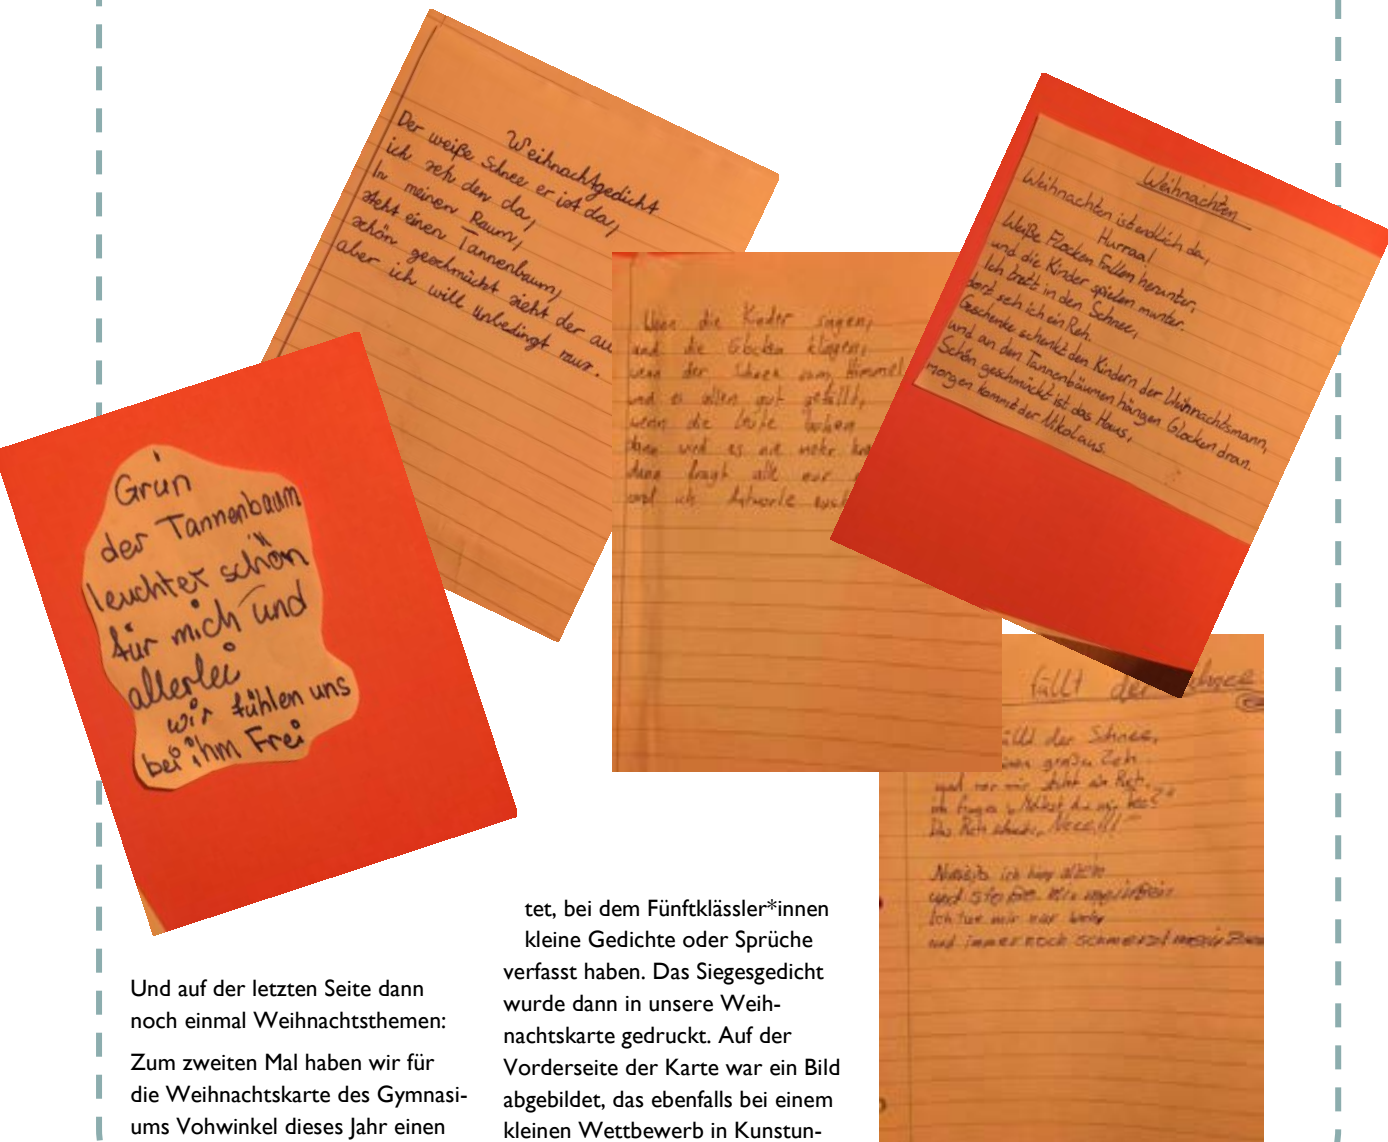 Weihnachtgedicht
Der weiße Schnee er ist da,
ich seh den da,
In meinen Raum,
steht einen Tannenbaum,
schön geschmückt sieht der au
aber ich will unbedingt raus.
Weihnachten
Weihnachten ist endlich da,
Hurraa!
Weiße Flocken Fallen herunter,
und die Kinder spielen munter.
Ich trett in den Schnee,
dort seh ich ein Reh.
Geschenke schenkt den Kindern der Weihnachtsmann,
und an den Tannenbäumen hängen Glocken dran.
Schön geschmückt ist das Haus,
morgen kommt der Nikolaus.
Wenn die Kinder singen,
und die Glocken klingen,
wenn der Schnee vom Himmel
und es allen gut gefällt,
wenn die Leute
dann wird es nie mehr
dann fragt alle nur
und ich Antworte
Grün
der Tannenbaum
leuchtet schön
für mich und
allerlei
wir fühlen uns
bei ihm Frei
fällt der
der Schnee,
großen Zeh
und vor mir steht ein Reh.
ich frage
Das Reh Neee!!!
ich hier allein
und
Ich tue mir nur
und immer noch schmerzt mein
Und auf der letzten Seite dann
noch einmal Weihnachtsthemen:
Zum zweiten Mal haben wir für
die Weihnachtskarte des Gymnasi-
ums Vohwinkel dieses Jahr einen
tet, bei dem Fünftklässler*innen
kleine Gedichte oder Sprüche
verfasst haben. Das Siegesgedicht
wurde dann in unsere Weih-
nachtskarte gedruckt. Auf der
Vorderseite der Karte war ein Bild
abgebildet, das ebenfalls bei einem
kleinen Wettbewerb in Kunstun-